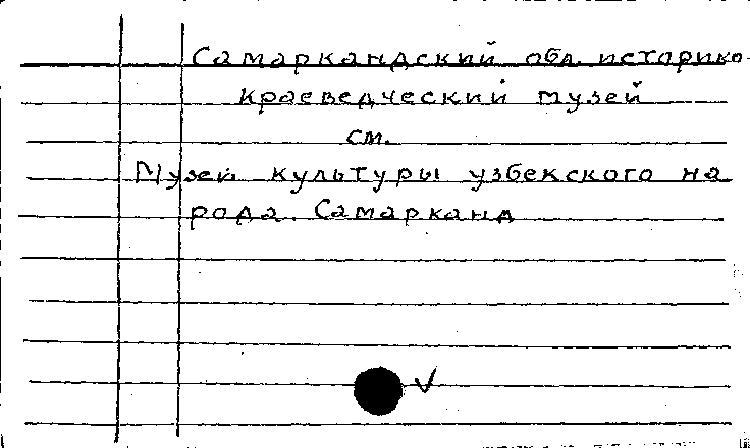 Самаркандский обл. историко-
краеведческий музей
см.
Музей культуры узбекского на
рода. Самарканд